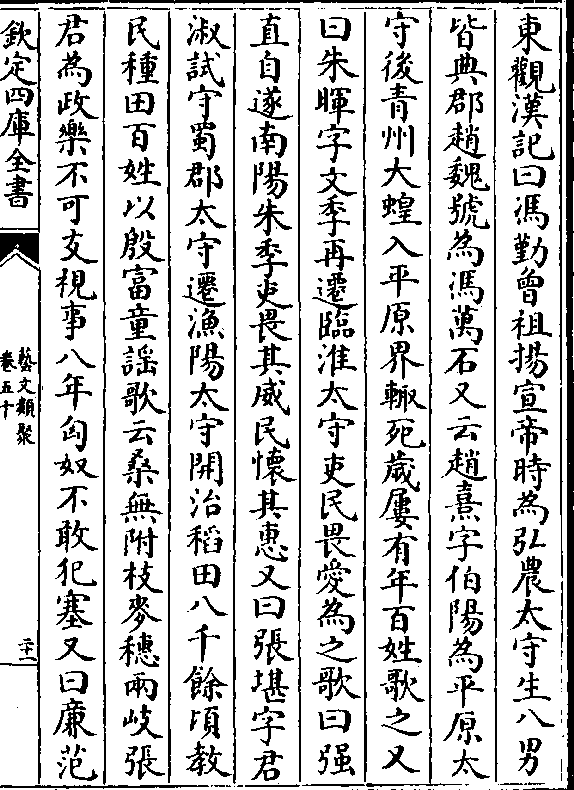 東觀漢記曰馮勤曾祖揚宣帝時為弘農太守生八男
皆典郡趙魏號為馮萬石又云趙熹字伯陽為平原太
守後青州大蝗入平原界輙死歳屢有年百姓歌之又
曰朱暉字文季再遷臨淮太守吏民畏愛為之歌曰强
直自遂南陽朱季吏畏其威民懷其惠又曰張堪字君
淑試守蜀郡太守遷漁陽太守開治稻田八千餘頃教
民種田百姓以殷富童謡歌云桑無附枝麥穗兩岐張
君為政樂不可支視事八年匈奴不敢犯塞又曰廉范
欽定四庫全書
藝文類聚
卷五十
二十一